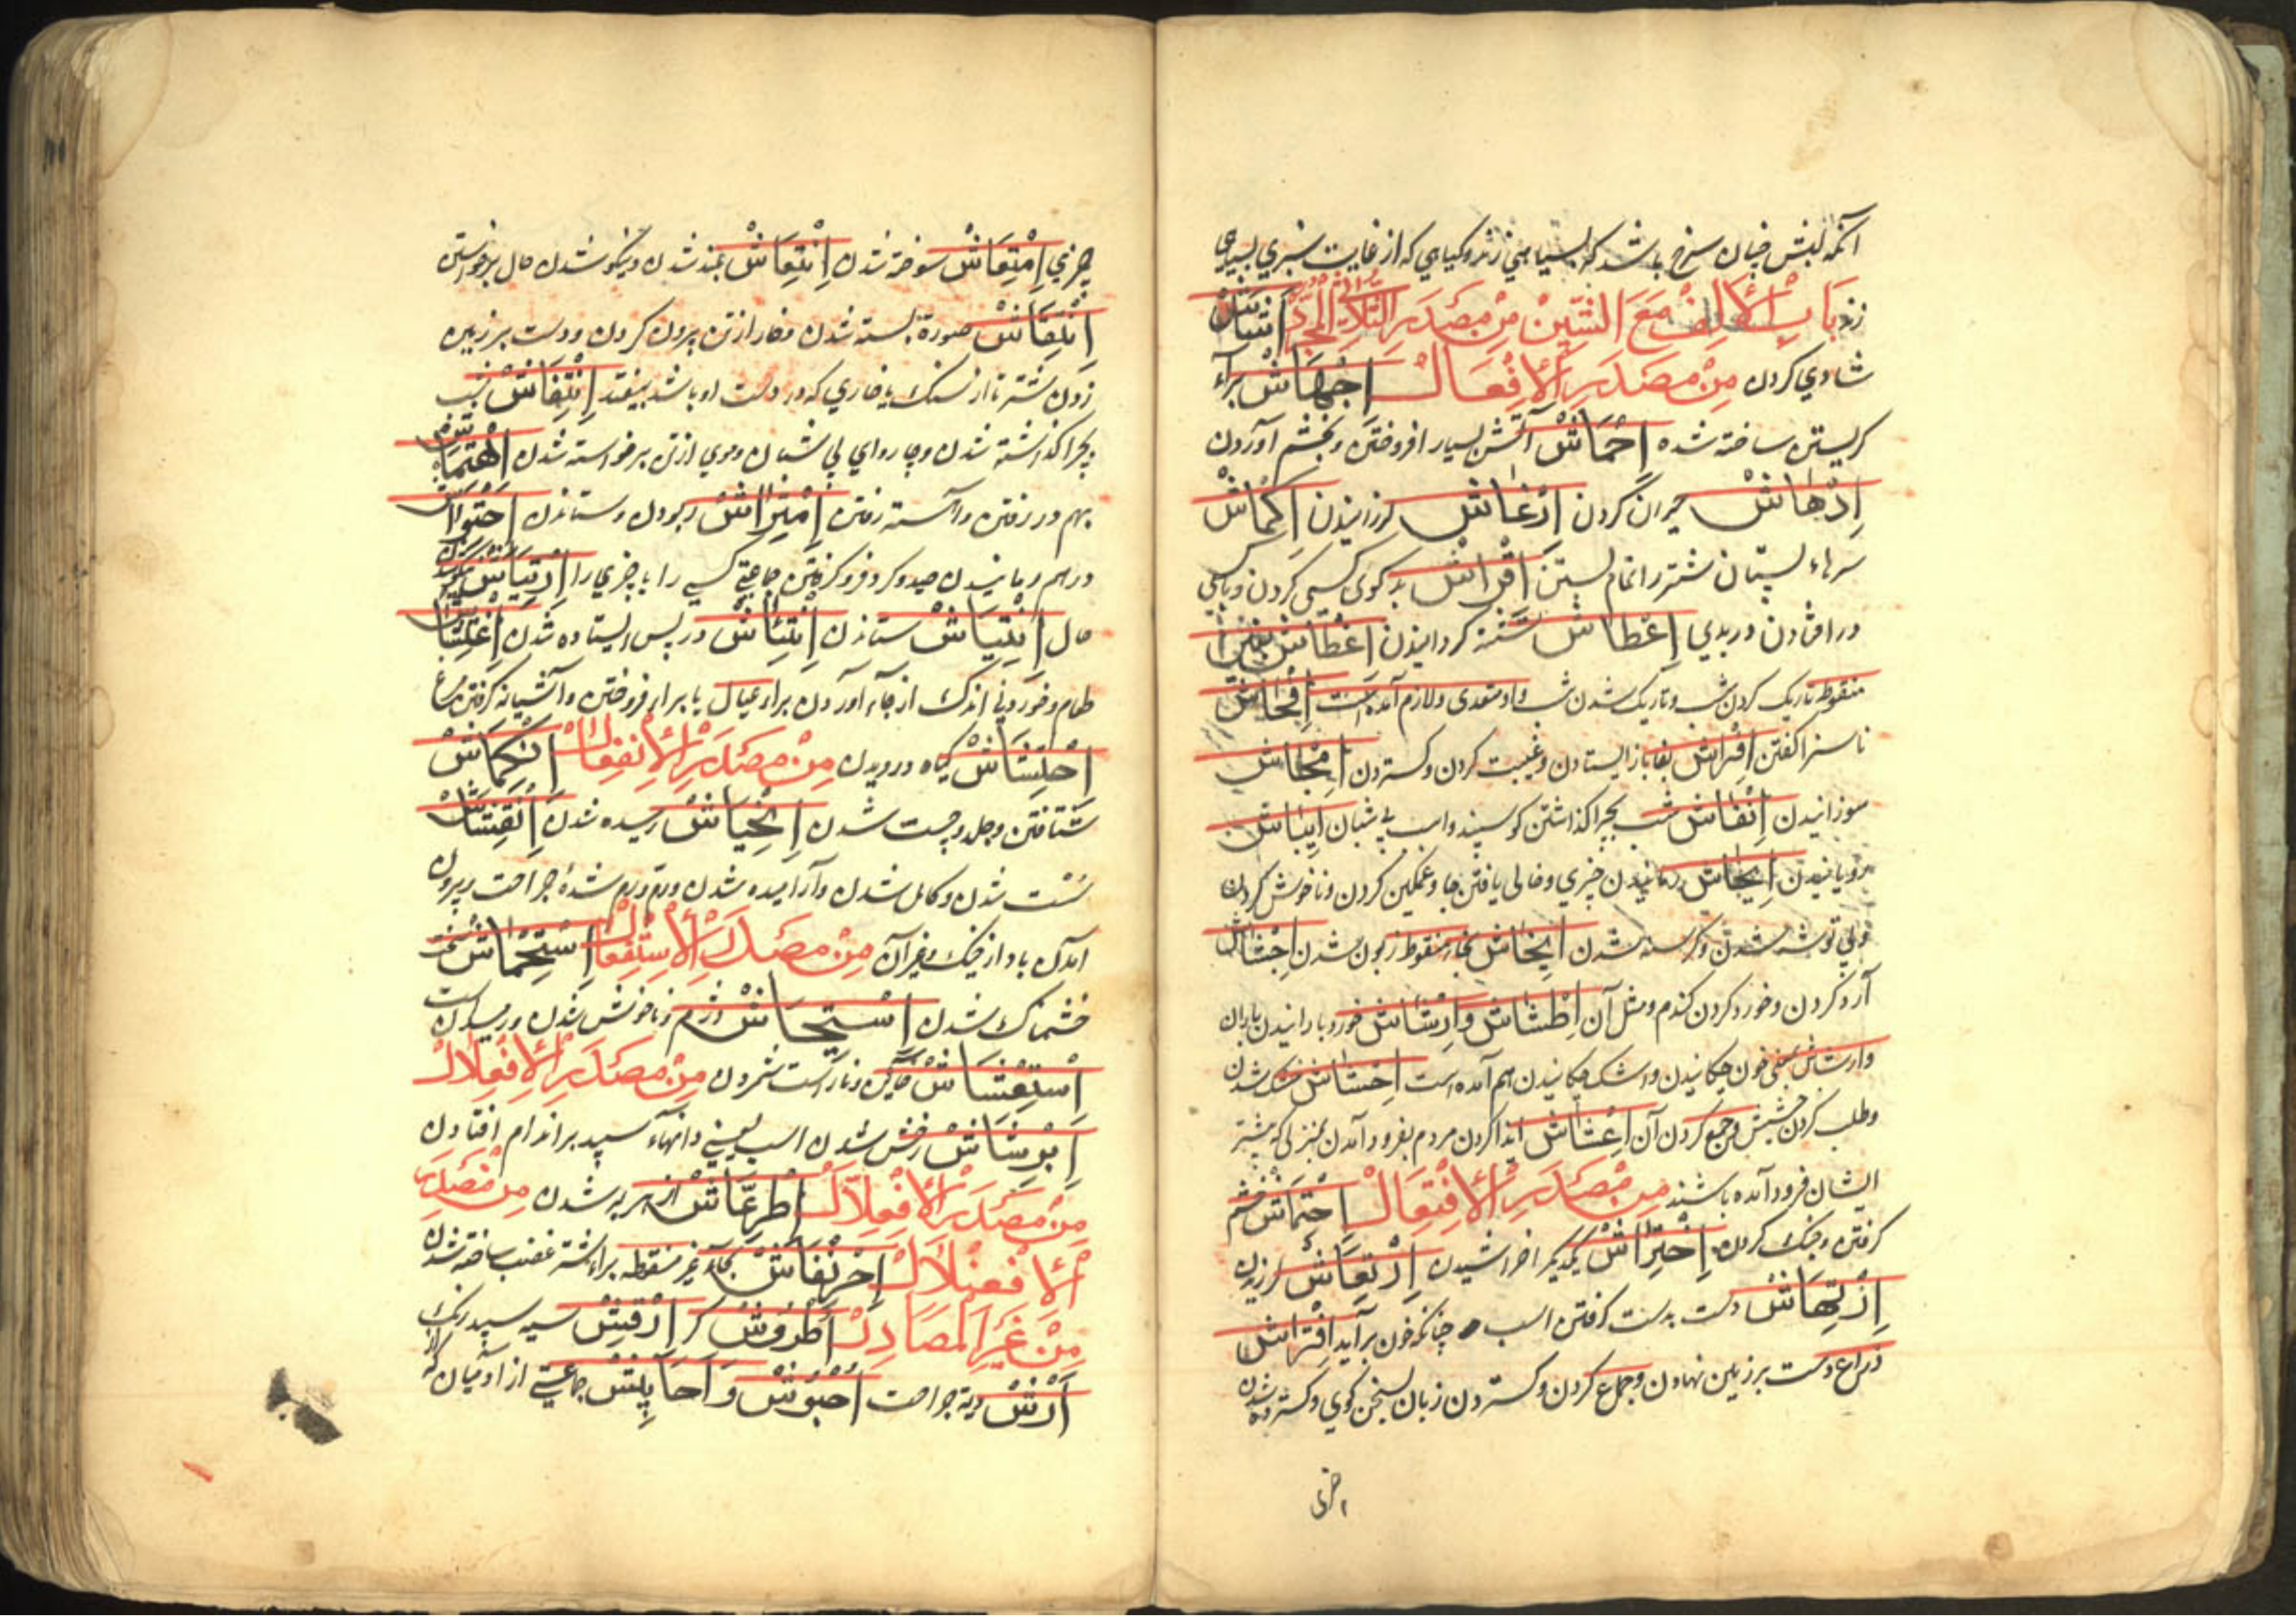 آنکه لبش چنان سرخ باشد که بسیاهی زند و کیاهی که از غایت سبزی بسیاهی
زند بَابُ الْأَلِفِ مَعَ الشِّیْنِ مِنْ مَصْدَرِ الثُّلَاثِیِّ الْمُجَرَّدِ
شادی کردن مِنْ مَصْدَرِ الْإِفْعَالِ إِجْهَاشْ برای
کریستن ساخته شده إِحْمَاشْ آتش بسیار افروختن و بخشم آوردن
إِدْهَاشْ حیران کردن إِرْعَاشْ لرزانیدن إِكْمَاشْ
سرهاء پستان شتر را تمام بستن إِقْرَاشْ بد کوی کسی کردن و
در افتادن در بدی إِعْطَاشْ تشنه کردانیدن إِغْطَاشْ بغین
منقوطه تاریک کردن شب و تاریک شدن شب و او متعدی و لازم آمده است إِفْحَاشْ
ناسزا کفتن إِفْرَاشْ بقا باز ایستادن و غیبت کردن و کستردن إِمْحَاشْ
سوزانیدن إِنْفَاشْ شب بچرا کذاشتن کوسپند و اسب بی شبان إِیْبَاشْ
رویانیدن إِیْحَاشْ رمانیدن چیزی و خالی یافتن جا و غمکین کردن و ناخوش کردن
و بی توشه شدن و کرسنه شدن إِیْخَاشْ بخاء منقوط زبون شدن إِجْشَاشْ
آرد کردن و خورد کردن کندم و مثل آن إِطْشَاشْ وَإِرْشَاشْ خورد بارانیدن باران
وارشاش بمعنی خون چکانیدن و اشک چکانیدن هم آمده است إِحْشَاشْ خشک شدن
و طلب کردن حشیش و جمع کردن آن إِعْشَاشْ ایذا کردن مردم بفرود آمدن بمنزلی که پیشتر
ایشان فرود آمده باشند مِنْ مَصْدَرِ الْإِفْتِعَالِ إِحْتِمَاشْ خشم
کرفتن و جنک کردن إِخْتِرَاشْ یکدیکر را خراشیدن إِرْتِعَاشْ لرزیدن
إِرْتِهَاشْ دست بدست کوفتن اسب چنانکه خون برآید إِفْتِرَاشْ
ذراع دست بر زمین نهادن و جماع کردن و کستردن زبان بسخن کوی و کسترده شدن
چیزی إِمْتِعَاشْ سوخته شدن إِنْتِعَاشْ بلند شدن و نیکو شدن حال برخواستن
إِنْتِقَاشْ صورة بسته شدن و خار از تن بیرون کردن و دست بر زمین
زدن شتر تا از سنک یا خاری که در دست او باشد بیفتد إِنْتِفَاشْ شب
بچرا کذاشته شدن و چاروای بی شبان و موی از تن برخواسته شدن إِهْتِمَاشْ
بهم در رفتن و آهسته رفتن إِمْتِرَاشْ ربودن و ستاندن إِحْتِوَاشْ
در هم رمانیدن صید و کرد فرو کرفتن جماعتی کسی را یا چیزی را إِرْتِیَاشْ نیکو شدن
حال إِنْتِیَاشْ ستاندن إِنْتِئَاشْ در پس ایستاده شدن إِغْتِشَاشْ
طعام و خوردنی اندک از جاء آوردن براء عیال یا براء فروختن و آشیانه کرفتن مرغ
إِحْتِشَاشْ کیاه درویدن مِنْ مَصْدَرِ الْإِنْفِعَالِ إِنْكِمَاشْ
شتافتن و جلد و چست شدن إِنْحِیَاشْ رمیده شدن إِنْفِشَاشْ
سست شدن و کاهل شدن و آرامیده شدن ورم و رم شده جراحت و بیرون
آمدن باد از خیک و غیر آن مِنْ مَصْدَرِ الْإِسْتِفْعَالِ إِسْتِحْمَاشْ
خشمناک شدن إِسْتِیْحَاشْ دژم و ناخوش شدن و رمیدن
إِسْتِغْشَاشْ خاین و ناراست شمردن مِنْ مَصْدَرِ الْإِفْعِلَالِ
إِبْرِشَاشْ رخش شدن اسب یعنی دانهاء سپید بر اندام افتادن
مِنْ مَصْدَرِ الْإِفْعِلَّالِ إِطْرِغْشَاشْ از مرض به شدن مِنْ مَصْدَرِ
الْإِفْعِنْلَالِ إِحْرِنْفَاشْ بحاء غیر منقوطه براء غضب ساخته شدن
مِنْ غَیْرِ الْمَصَادِرِ أُطْرُوشْ کر أَرْقَشْ سیه سپید رنک
أَرْشْ دیة جراحت أُحْبُوشْ وَ أَحَابِیْشْ جماعتی از آدمیان که